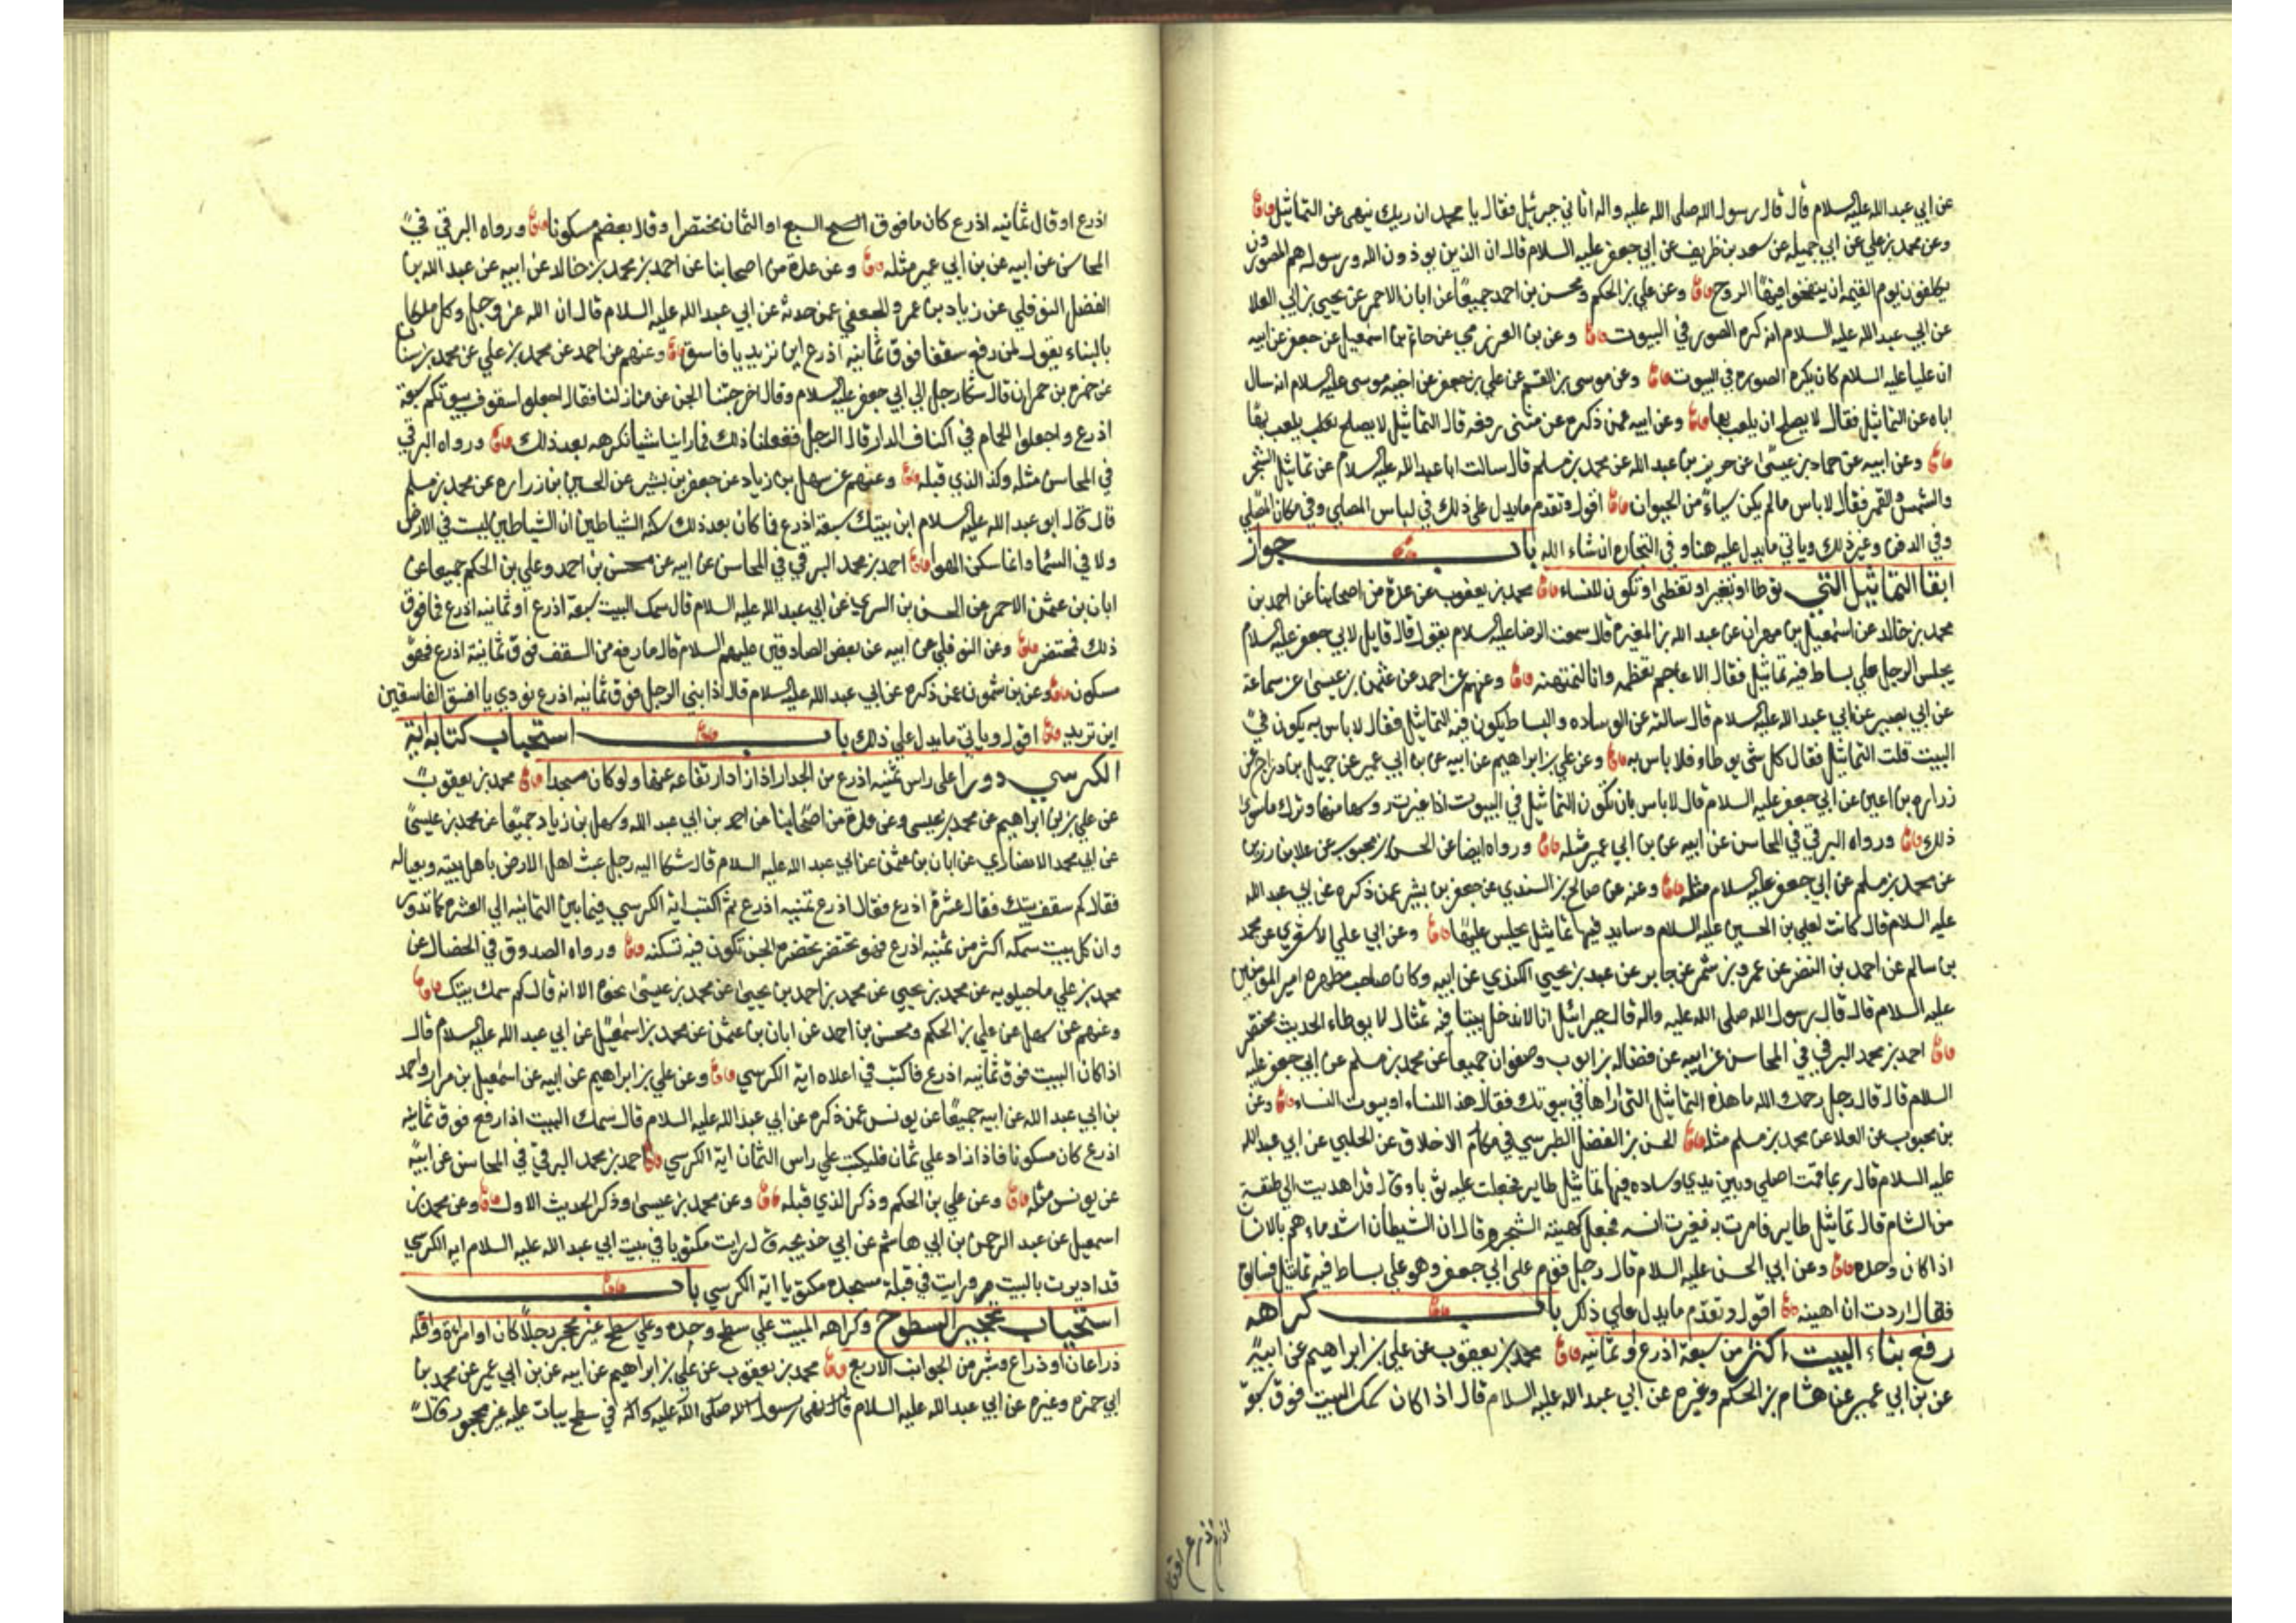 عن ابي عبد الله عليه السلام قال قال رسول الله صلى الله عليه واله اتاني جبرئيل فقال يا محمد ان ربك ينهى عن التماثيل
وعن محمد بن علي عن ابي جميله عن سعد بن ظريف عن أبي جعفر عليه السلام قال ان الذين يوذون الله ورسوله هم المصورون
يكلفون يوم القيمة ان ينفخوا فيها الروح وعن علي بن الحكم ومحسن بن احمد جميعا عن ابان الاحمر عن يحيى بن ابي العلا
عن ابي عبد الله عليه السلام انه كره الصور في البيوت وعن بن العرزمي عن حاتم بن اسمعيل عن جعفر عن ابيه
ان عليا عليه السلام كان يكره الصوره في البيوت وعن موسى بن القسم عن علي بن جعفر عن اخيه موسى عليه السلام انه سال
اباه عن التماثيل فقال لا يصلح ان يلعب بها وعن ابيه عمن ذكره عن مثنى رفعه قال التماثيل لا يصلح يلعب بها
وعن ابيه عن حماد بن عيسى عن حريز بن عبد الله عن محمد بن مسلم قال سالت ابا عبد الله عليه السلام عن تماثيل الشجر
والشمس والقمر فقال لا باس ما لم يكن شياء من الحيوان اقول وتقدم ما يدل على ذلك في لباس المصلي وفي مكان المصلي
وفي الدفن وغير ذلك وياتي ما يدل عليه هنا وفي التجاره ان شاء الله باب جواز
ابقا التماثيل التي توطا او تغير او تغطى او تكون للنساء محمد بن يعقوب عن عدة من اصحابنا عن احمد بن
محمد بن خالد عن اسمعيل بن مهران عن عبد الله بن المغيره قال سمعت الرضا عليه السلام يقول قال قايل لابي جعفر عليه السلام
يجلس الرجل على بساط فيه تماثيل فقال الاعاجم تعظمه وانا لنمتهنه وعنهم عن احمد عن عثمن بن عيسى عن سماعة
عن ابي بصير عن ابي عبد الله عليه السلام قال سالته عن الوساده والبساط يكون فيه التماثيل فقال لا باس به يكون في
البيت قلت التماثيل فقال كل شي يوطاء فلا باس به وعن علي بن ابراهيم عن ابيه عن بن ابي عمير عن جميل بن دراج عن
زراره بن اعين عن ابي جعفر عليه السلام قال لا باس بان تكون التماثيل في البيوت اذا غيرت روسها منها وترك ما سوى
ذلك ورواه البرقي في المحاسن عن ابيه عن بن ابي عمير مثله ورواه ايضا عن الحسن بن محبوب عن علا بن رزين
عن محمد بن مسلم عن ابي جعفر عليه السلام مثله وعنه عن صالح بن السندي عن جعفر بن بشير عمن ذكره عن ابي عبد الله
عليه السلام قال كانت لعلي بن الحسين عليه السلام وسايد فيها تماثيل يجلس عليها وعن ابي علي الاشعري عن محمد
بن سالم عن احمد بن النضر عن عمرو بن شمر عن جابر عن عبد بن يحيى الكندي عن ابيه وكان صاحب مطهره امير المومنين
عليه السلام قال قال رسول الله صلى الله عليه واله قال جبرائيل انا لا ندخل بيتا فيه تمثال لا يوطاء الحديث مختصر
احمد بن محمد البرقي في المحاسن عن ابيه عن فضاله بن ايوب وصفوان جميعا عن محمد بن مسلم عن ابي جعفر عليه
السلام قال قال رجل رحمك الله ما هذه التماثيل التي اراها في بيوتك فقال هذا للنساء او بيوت النساء وعن
بن محبوب عن العلا عن محمد بن مسلم مثله الحسن بن الفضل الطبرسي في مكارم الاخلاق عن الحلبي عن ابي عبد الله
عليه السلام قال ربما قمت اصلي وبين يدي وساده فيها تماثيل طاير فجعلت عليه ثوبا وقال قد اهديت الي طنفسة
من الشام قال تماثيل طاير فامرت به فغيرت راسه فجعل كهيئة الشجر وقال ان الشيطان اشد ما يهم بالانسان
اذا كان وحده وعن ابي الحسن عليه السلام قال دخل قوم على ابي جعفر وهو على بساط فيه تماثيل فسالوه
فقال اردت ان اهينه اقول وتقدم ما يدل على ذلك باب كراهه
رفع بناء البيت اكثر من سبعة اذرع او ثمانيه محمد بن يعقوب عن علي بن ابراهيم عن ابيه
عن بن ابي عمير عن هشام بن الحكم وغيره عن ابي عبد الله عليه السلام قال اذا كان سمك البيت فوق سبعة
اذرع او قال ثمانيه اذرع كان ما فوق السبع او الثمان محتضرا وقال بعضهم مسكونا ورواه البرقي في
المحاسن عن ابيه عن بن ابي عمير مثله وعن عدة من اصحابنا عن احمد بن محمد بن خالد عن ابيه عن عبد الله بن
الفضل النوفلي عن زياد بن عمرو الجعفي عمن حدثه عن ابي عبد الله عليه السلام قال ان الله عز وجل وكل ملكا
بالبناء يقول لمن رفع سقفا فوق ثمانيه اذرع اين تريد يا فاسق وعنهم عن احمد عن محمد بن علي عن محمد بن سنان
عن حمزه بن حمران قال شكا رجل الى ابي جعفر عليه السلام وقال اخرجتنا الجن عن منازلنا فقال اجعلوا سقوف بيوتكم سبعة
اذرع واجعلوا الحمام في اكناف الدار قال الرجل ففعلنا ذلك فما راينا شيا نكرهه بعد ذلك ورواه البرقي
في المحاسن مثله وكذا الذي قبله وعنهم عن سهل بن زياد عن جعفر بن بشير عن الحسين بن زراره عن محمد بن مسلم
قال قال ابو عبد الله عليه السلام ابن بيتك سبعة اذرع فما كان بعد ذلك سكنه الشياطين ان الشياطين ليست في الارض
ولا في السماء وانما سكن الهوا احمد بن محمد البرقي في المحاسن عن ابيه عن محسن بن احمد وعلي بن الحكم جميعا عن
ابان بن عثمن الاحمر عن الحسن بن السري عن ابي عبد الله عليه السلام قال سمك البيت سبعة اذرع او ثمانيه اذرع فما فوق
ذلك فمحتضر وعن النوفلي عن ابيه عن بعض الصادقين عليهم السلام قال ما رفع من السقف فوق ثمانية اذرع فهو
مسكون وعن بن شمون عمن ذكره عن ابي عبد الله عليه السلام قال اذا بنى الرجل فوق ثمانيه اذرع نودي يا افسق الفاسقين
اين تريد اقول وياتي ما يدل على ذلك باب استحباب كتابه اية
الكرسي دورا على راس ثمنيه اذرع من الجدار اذا زاد ارتفاعه عنها ولو كان مسجدا محمد بن يعقوب
عن علي بن ابراهيم عن محمد بن عيسى وعن عدة من اصحابنا عن احمد بن ابي عبد الله وسهل بن زياد جميعا عن محمد بن عيسى
عن ابي محمد الانصاري عن ابان بن عثمن عن ابي عبد الله عليه السلام قال شكا اليه رجل عبث اهل الارض باهل بيته وبعياله
فقال كم سقف بيتك فقال عشرة اذرع فقال اذرع ثمنيه اذرع ثم اكتب اية الكرسي فيما بين الثمانيه الى العشره كما تدور
وان كل بيت سمكه اكثر من ثمنيه اذرع فهو محتضر تحضره الجن تكون فيه تسكنه ورواه الصدوق في الخصال عن
محمد بن علي ماجيلويه عن محمد بن يحيى عن محمد بن احمد بن يحيى عن محمد بن عيسى نحوه الا انه قال كم سمك بيتك
وعنهم عن سهل عن علي بن الحكم ومحسن بن احمد عن ابان بن عثمن عن محمد بن اسمعيل عن ابي عبد الله عليه السلام قال
اذا كان البيت فوق ثمانيه اذرع فاكتب في اعلاه اية الكرسي وعن علي بن ابراهيم عن ابيه عن اسمعيل بن مرار واحمد
بن ابي عبد الله عن ابيه جميعا عن يونس عمن ذكره عن ابي عبد الله عليه السلام قال سمك البيت اذا رفع فوق ثمانيه
اذرع كان مسكونا فاذا زاد على ثمان فليكتب على راس الثمان اية الكرسي احمد بن محمد البرقي في المحاسن عن ابيه
عن يونس مثله وعن علي بن الحكم وذكر الذي قبله وعن محمد بن عيسى وذكر الحديث الاول وعن محمد بن
اسمعيل عن عبد الرحمن بن ابي هاشم عن ابي خديجه قال رايت مكتوبا في بيت ابي عبد الله عليه السلام اية الكرسي
قد اديرت بالبيت ورايت في قبلة مسجده مكتوبا اية الكرسي باب
استحباب تحجير السطوح وكراهه المبيت على سطح وحده وعلى سطح غير محجر رجلا كان او امراة واقله
ذراعان او ذراع وشبر من الجوانب الاربع محمد بن يعقوب عن علي بن ابراهيم عن ابيه عن بن ابي عمير عن محمد بن
ابي حمزه وغيره عن ابي عبد الله عليه السلام قال نهى رسول الله صلى الله عليه واله في سطح يبات عليه غير محجر قال
اذرع او قال